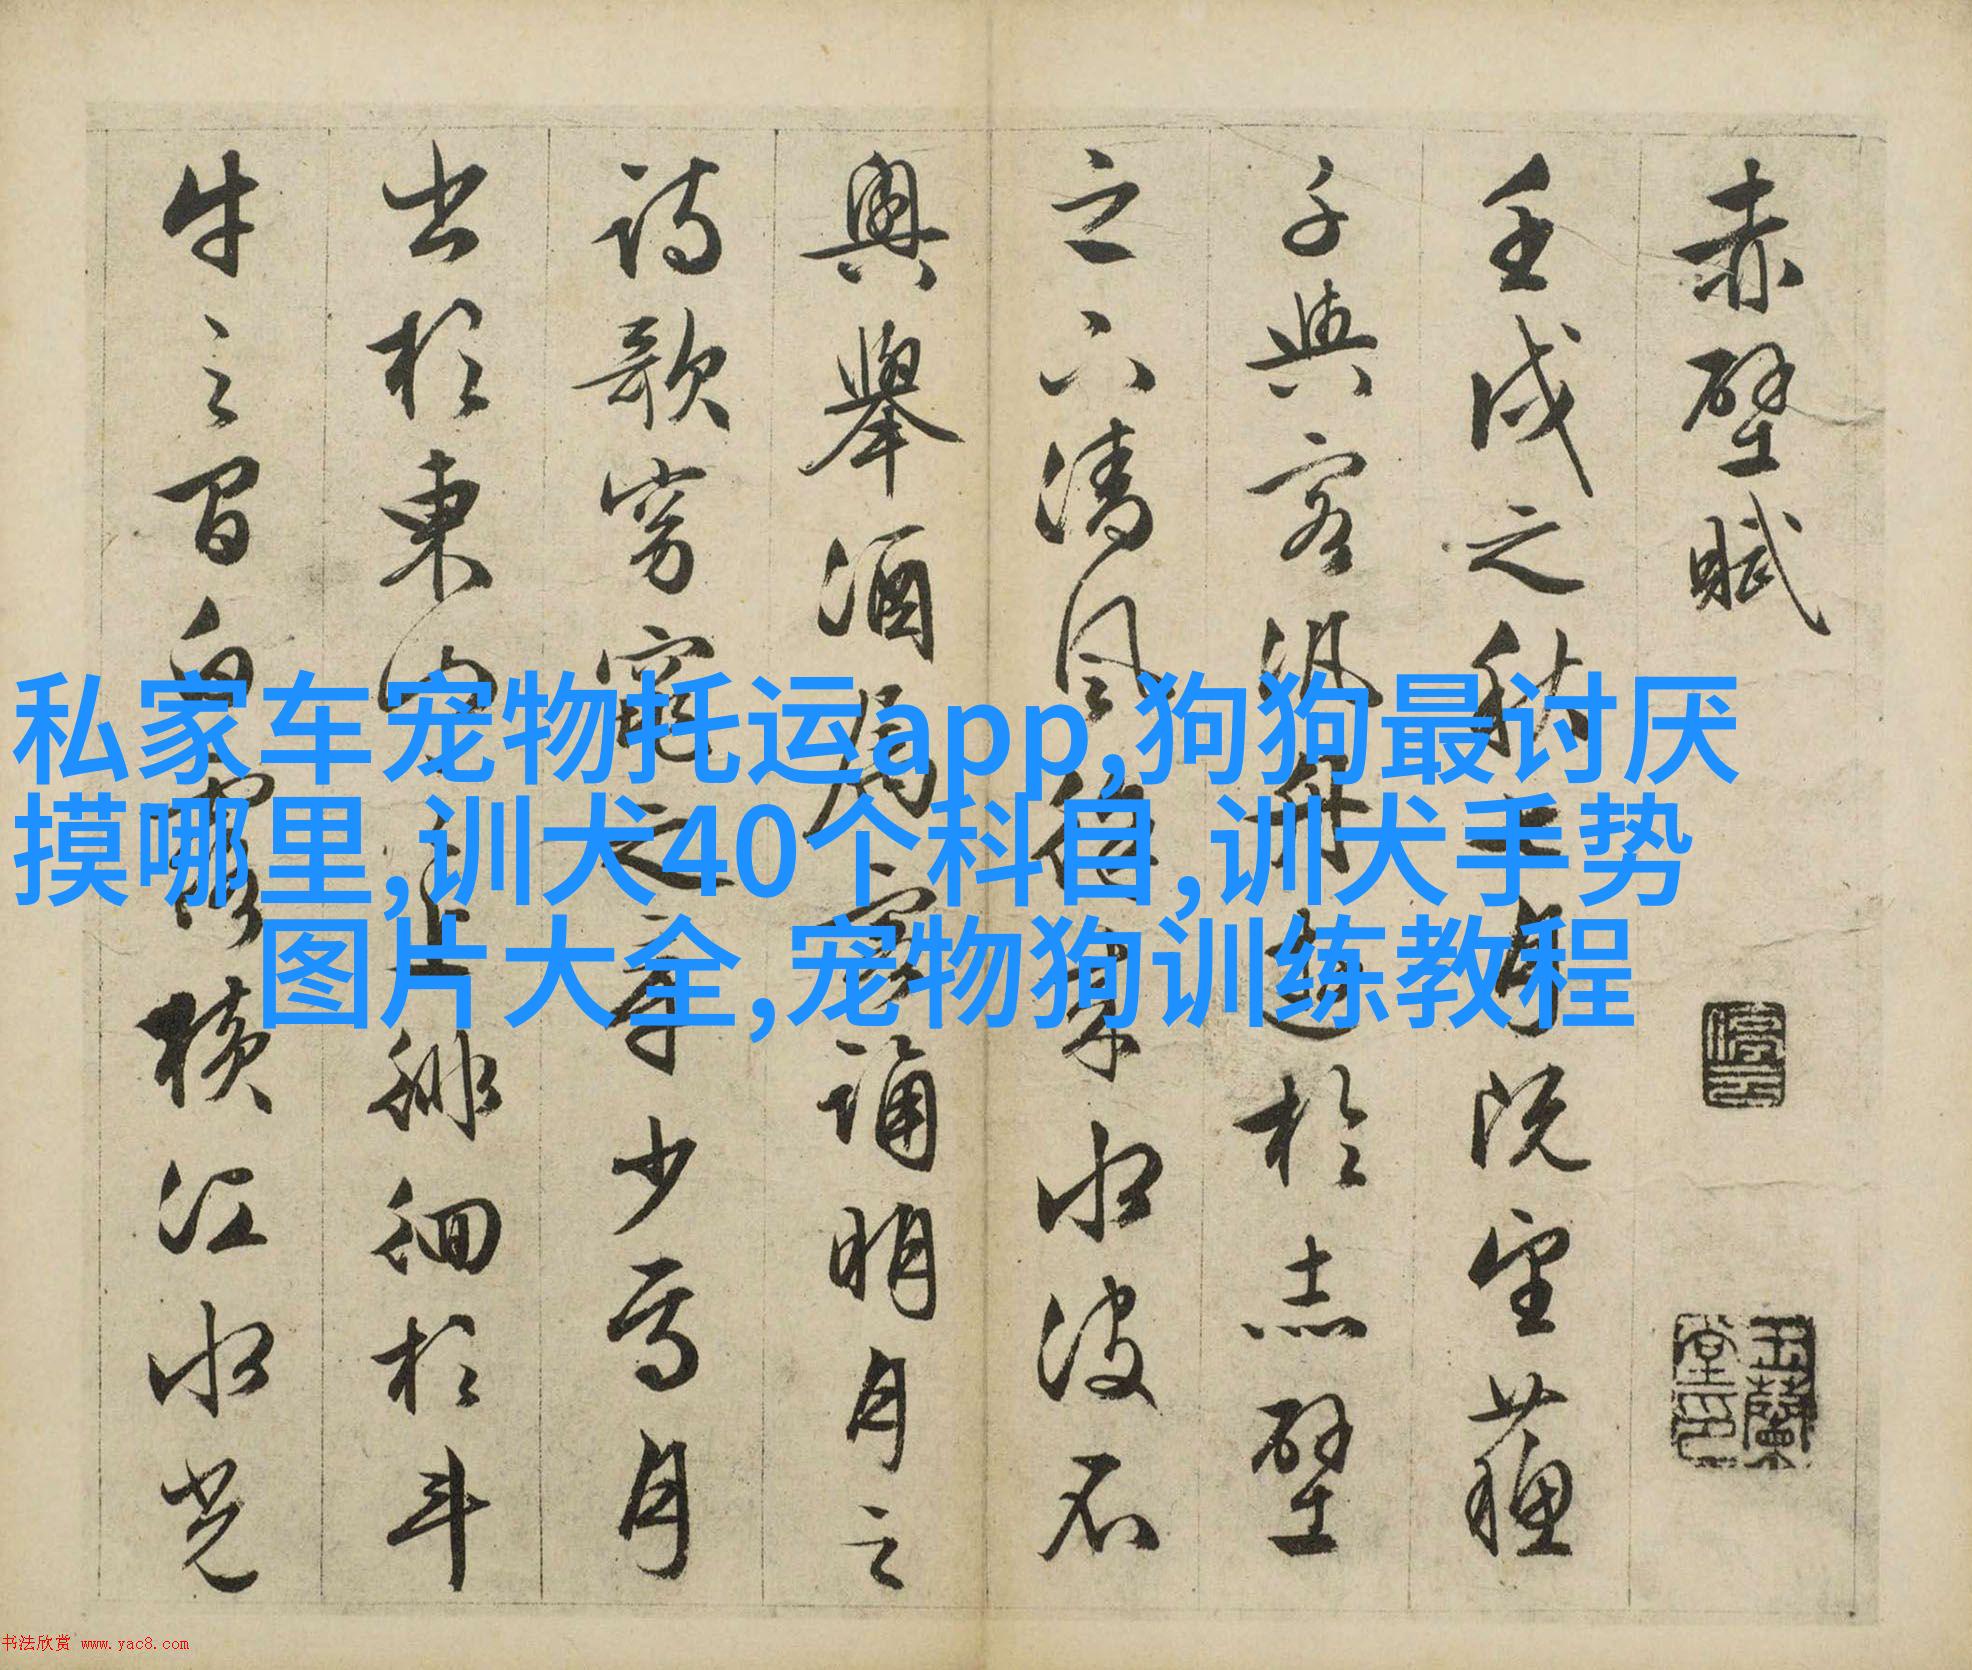 赤壁賦
壬戌之秋七月既望蘇
子與客汎舟遊於赤壁
之下清風徐來水波不
興舉酒屬客誦明月之
詩歌窈窕之章少焉月
出於東山之上徘徊於斗
牛之間白露橫江水光
停云
玉蘭堂印
私家车宠物托运app,狗狗最讨厌
摸哪里,训犬40个科目,训犬手势
图片大全,宠物狗训练教程
书法欣赏 www.yac8.com